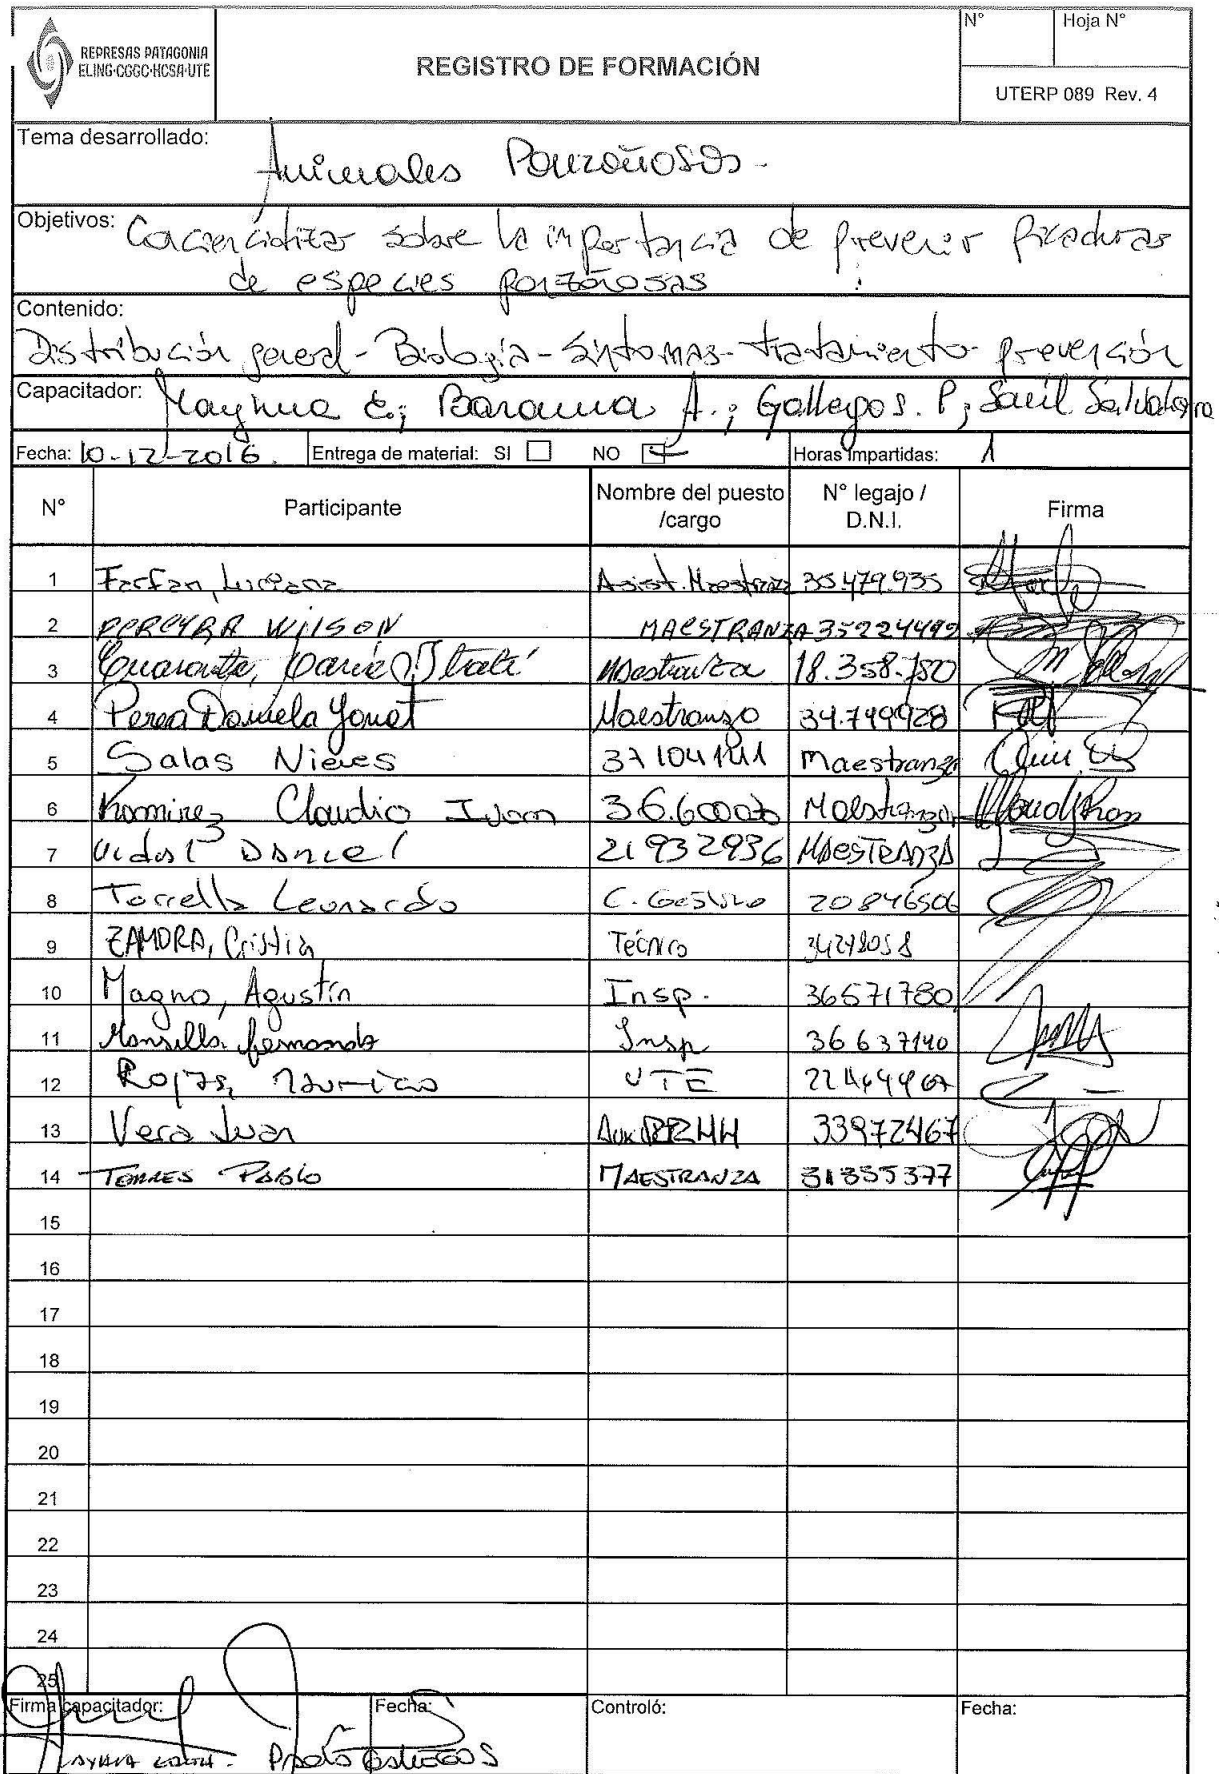 REPRESAS PATAGONIA
ELING-CGGC-HCSA-UTE
REGISTRO DE FORMACIÓN
N°
Hoja N°
UTERP 089 Rev. 4
Tema desarrollado:
Animales Ponzoñosos -
Objetivos: Concientizar sobre la importancia de prevenir picaduras
de especies ponzoñosas
Contenido:
Distribución general - Biología - Síntomas - tratamiento - prevención
Capacitador: Maynua E; A.; Gallegos. P; Saúl
Fecha: 10-12-2016. Entrega de material: SI NO Horas Impartidas: 1
N° Participante Nombre del puesto /cargo N° legajo / D.N.I. Firma
1 Farfan, Luciana Asist. Maestranza 35.479.935
2 PEREYRA WILSON MAESTRANZA 35224499
3 Maestranza 18.358.750
4 Perea Daniela Yanet Maestranza 34.749928
5 Salas Nieves Maestranza
6 Ramirez Claudio Ivan Maestranza
7 Vidal Daniel 21932936 MAESTRANZA
8 Torrella Leonardo 20846506
9 ZAMORA, Cristia Técnico
10 Magno, Agustín Insp. 36571780
11 Mansilla Insp 36637140
12 Rojas, Mauricio UTE
13 Vera Juan Aux RRHH 33972467
14 TORRES PABLO MAESTRANZA 31355377
15
16
17
18
19
20
21
22
23
24
25
Firma capacitador: Fecha: Controló: Fecha: